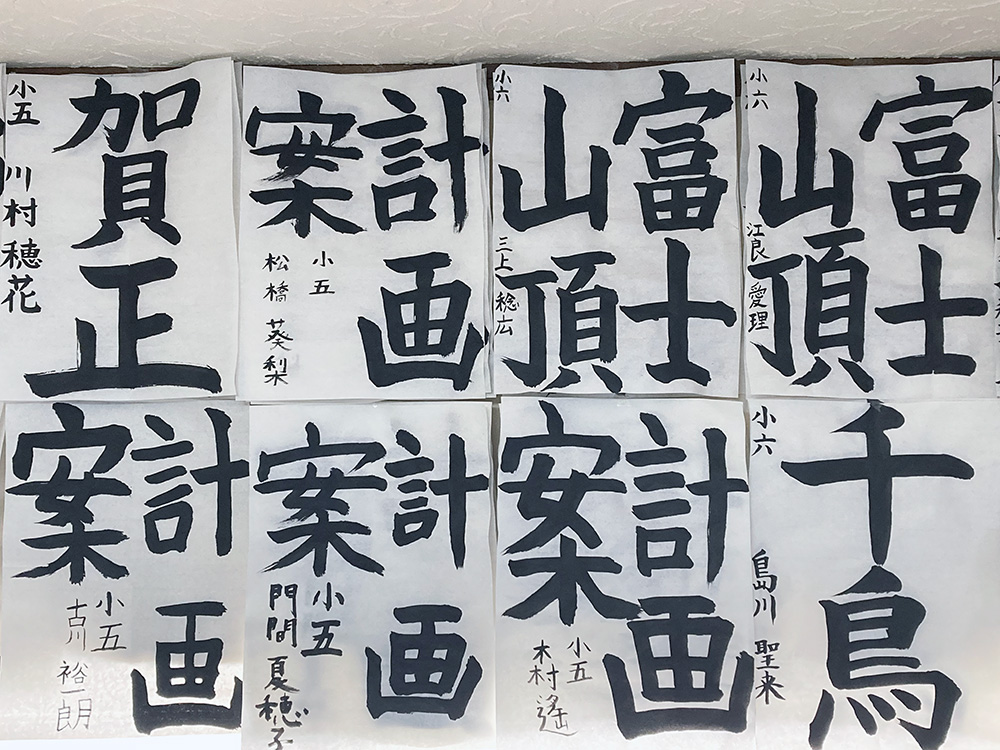 賀正
小五 川村穂花
計画
案
小五
松橋 葵梨
富士
山頂
小六 三上 稔広
富士
山頂
小六 江良 愛理
計画
案
小五
古川 裕一朗
計画
案
小五
門間 夏穂子
計画
案
小五
木村 遙
千鳥
小六 島川 聖来